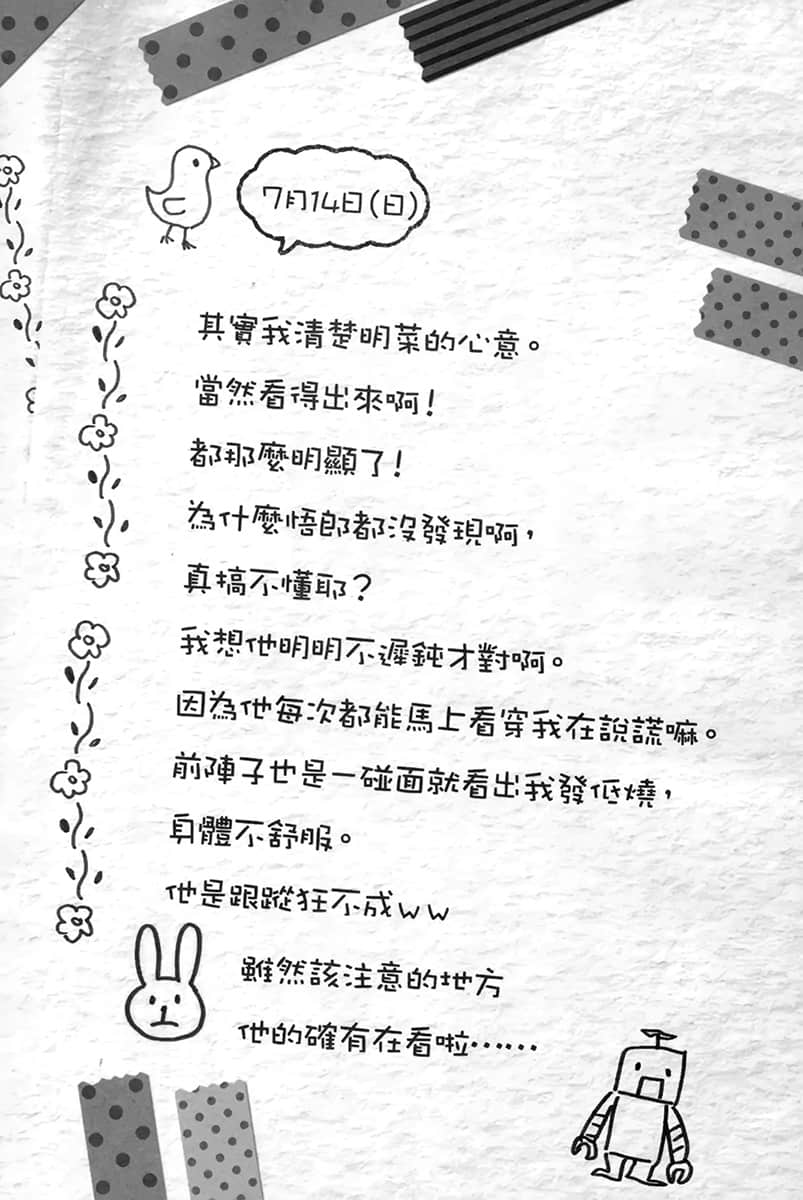 7月14日(日)
其實我清楚明菜的心意。
當然看得出來啊!
都那麼明顯了!
為什麼悟郎都沒發現啊,
真搞不懂耶?
我想他明明不遲鈍才對啊。
因為他每次都能馬上看穿我在說謊嘛。
前陣子也是一碰面就看出我發低燒,
身體不舒服。
他是跟蹤狂不成ww
雖然該注意的地方
他的確有在看啦……